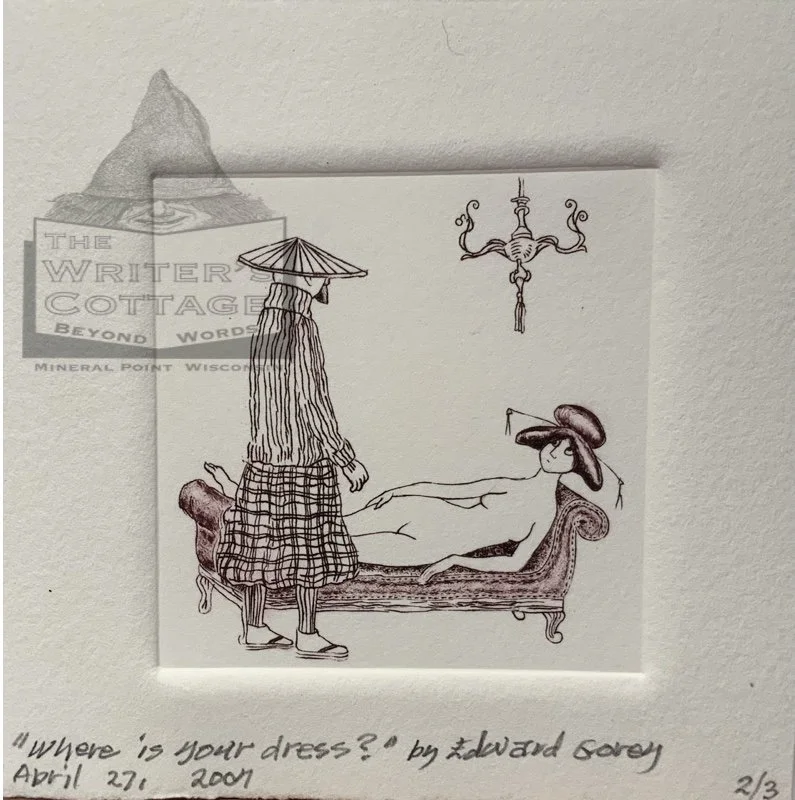 THE
WRITER'S
COTTAGE
BEYOND WORDS
MINERAL POINT WISCONSIN
"Where is your dress?" by Edward Gorey
April 27, 2007
2/3